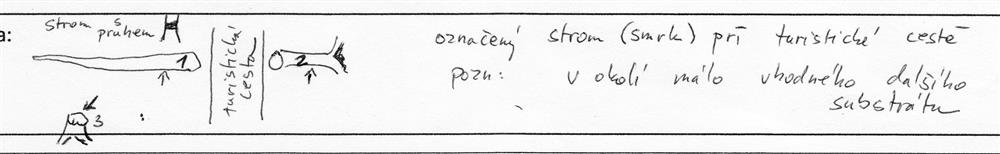 a:
strom s
pruhem
1
turistická
cesta
2
3
označený strom (smrk) při turistické cestě
pozn: v okolí málo vhodného dalšího
substrátu